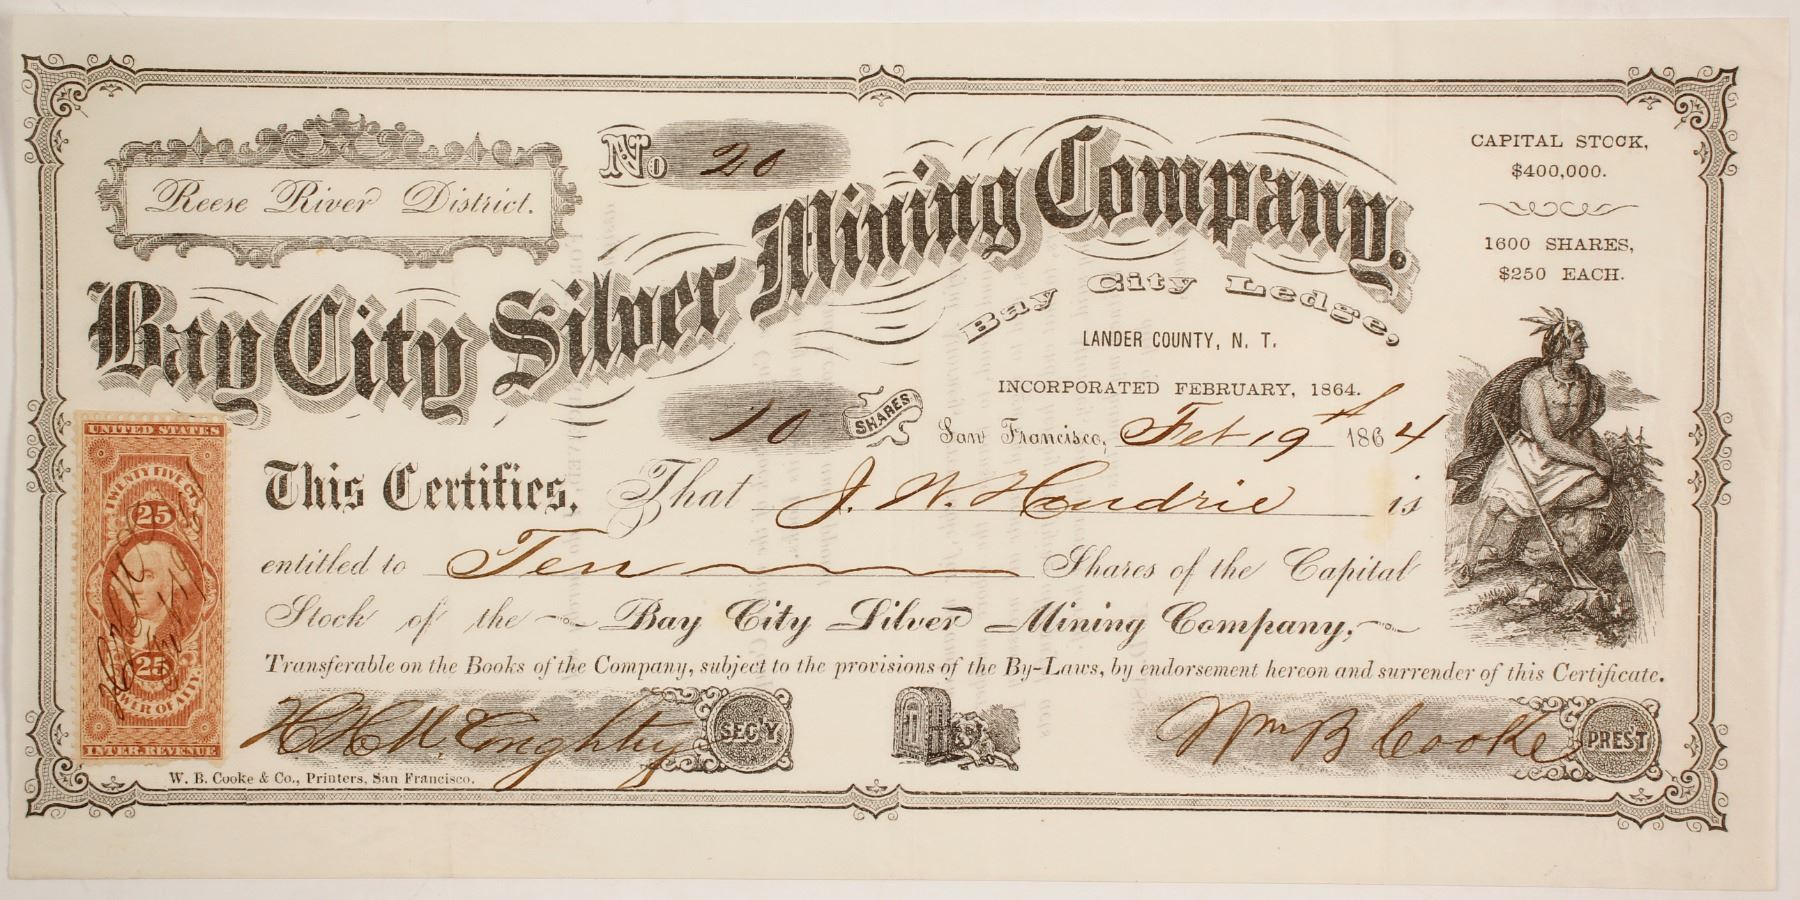 Reese River District.
No 20
Bay City Silver Mining Company.
Bay City Ledge,
LANDER COUNTY, N. T.
INCORPORATED FEBRUARY, 1864.
CAPITAL STOCK,
$400,000.
1600 SHARES,
$250 EACH.
10 SHARES
San Francisco, Feb 19th 1864
This Certifies, That J. W. Hendrie is
entitled to Ten Shares of the Capital
Stock of the Bay City Silver Mining Company,
Transferable on the Books of the Company, subject to the provisions of the By-Laws, by endorsement hereon and surrender of this Certificate.
SEC'Y
Wm B Cooke PREST
W. B. Cooke & Co., Printers, San Francisco.
UNITED STATES
TWENTY FIVE CTS
25
25
POWER OF ATT'Y
INTER. REVENUE